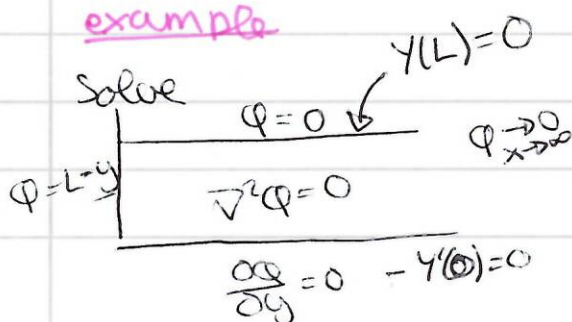 example
Y(L)=0
Solve
φ=0
φ→0
x→∞
φ=L-y
∇²φ=0
∂φ/∂y=0 - Y'(0)=0